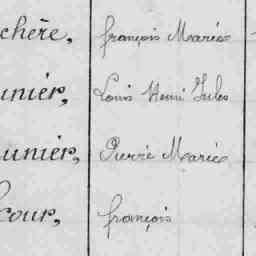 chère, françois Marie
unier, Louis Henri Jules
unier, Pierre Marie
cour, françois